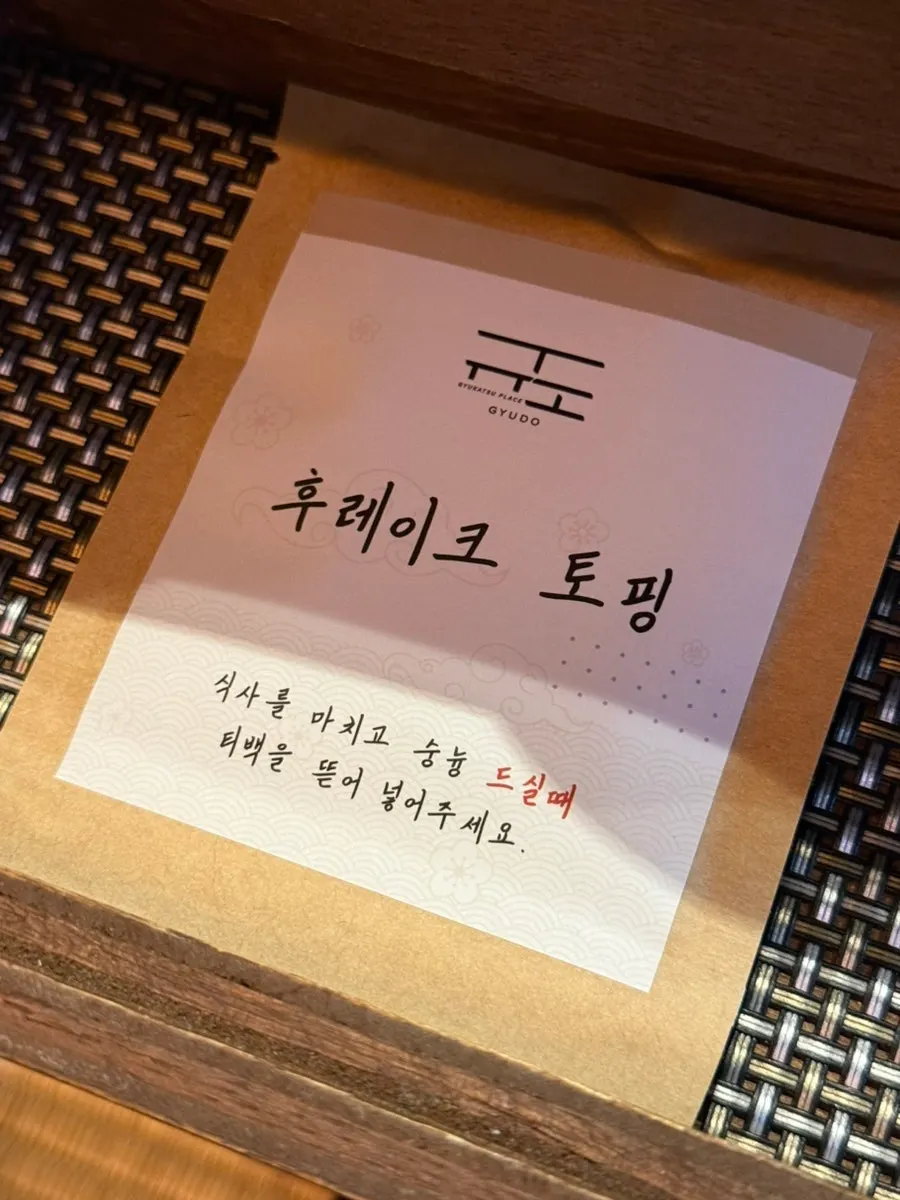 규도
GYUKATSU PLACE
GYUDO
후레이크 토핑
식사를 마치고 숭늉 드실때
티백을 뜯어 넣어주세요.